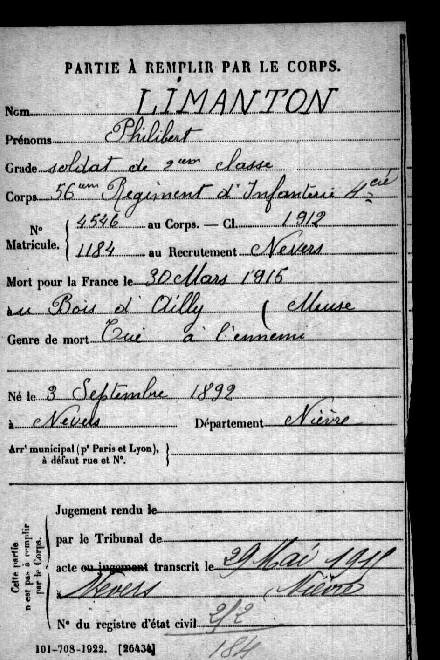 PARTIE À REMPLIR PAR LE CORPS.
Nom LIMANTON
Prénoms Philibert
Grade soldat de 2em classe
Corps 56em Regiment d'Infanterie 4 cie
N° Matricule. { 4546 au Corps. — Cl. 1912
1184 au Recrutement Nevers
Mort pour la France le 30 Mars 1915
au Bois d'Ailly (Meuse
Genre de mort Tué à l'ennemi
Né le 3 Septembre 1892
à Nevers Département Nièvre
Arrt municipal (pr Paris et Lyon), à défaut rue et N°. }
Cette partie n'est pas à remplir par le Corps.
Jugement rendu le
par le Tribunal de
acte ou jugement transcrit le 29 Mai 1915
à Nevers (Nièvre
N° du registre d'état civil 2/2
184
101-708-1922. [26434]